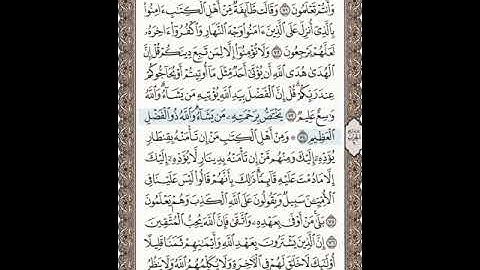 وَأَنتُمْ تَعْلَمُونَ ٧١ وَقَالَت طَّآئِفَةٌ مِّنْ أَهْلِ ٱلْكِتَٰبِ ءَامِنُوا۟
بِٱلَّذِىٓ أُنزِلَ عَلَى ٱلَّذِينَ ءَامَنُوا۟ وَجْهَ ٱلنَّهَارِ وَٱكْفُرُوٓا۟ ءَاخِرَهُۥ
لَعَلَّهُمْ يَرْجِعُونَ ٧٢ وَلَا تُؤْمِنُوٓا۟ إِلَّا لِمَن تَبِعَ دِينَكُمْ قُلْ إِنَّ
ٱلْهُدَىٰ هُدَى ٱللَّهِ أَن يُؤْتَىٰٓ أَحَدٌ مِّثْلَ مَآ أُوتِيتُمْ أَوْ يُحَآجُّوكُمْ
عِندَ رَبِّكُمْ قُلْ إِنَّ ٱلْفَضْلَ بِيَدِ ٱللَّهِ يُؤْتِيهِ مَن يَشَآءُ وَٱللَّهُ
وَٰسِعٌ عَلِيمٌ ٧٣ يَخْتَصُّ بِرَحْمَتِهِۦ مَن يَشَآءُ وَٱللَّهُ ذُو ٱلْفَضْلِ
ٱلْعَظِيمِ ٧٤ وَمِنْ أَهْلِ ٱلْكِتَٰبِ مَنْ إِن تَأْمَنْهُ بِقِنطَارٍ
يُؤَدِّهِۦٓ إِلَيْكَ وَمِنْهُم مَّنْ إِن تَأْمَنْهُ بِدِينَارٍ لَّا يُؤَدِّهِۦٓ إِلَيْكَ
إِلَّا مَا دُمْتَ عَلَيْهِ قَآئِمًا ذَٰلِكَ بِأَنَّهُمْ قَالُوا۟ لَيْسَ عَلَيْنَا فِى
ٱلْأُمِّيِّـۧنَ سَبِيلٌ وَيَقُولُونَ عَلَى ٱللَّهِ ٱلْكَذِبَ وَهُمْ يَعْلَمُونَ
٧٥ بَلَىٰ مَنْ أَوْفَىٰ بِعَهْدِهِۦ وَٱتَّقَىٰ فَإِنَّ ٱللَّهَ يُحِبُّ ٱلْمُتَّقِينَ
٧٦ إِنَّ ٱلَّذِينَ يَشْتَرُونَ بِعَهْدِ ٱللَّهِ وَأَيْمَٰنِهِمْ ثَمَنًا قَلِيلًا
أُو۟لَٰٓئِكَ لَا خَلَٰقَ لَهُمْ فِى ٱلْـَٔاخِرَةِ وَلَا يُكَلِّمُهُمُ ٱللَّهُ وَلَا يَنظُرُ